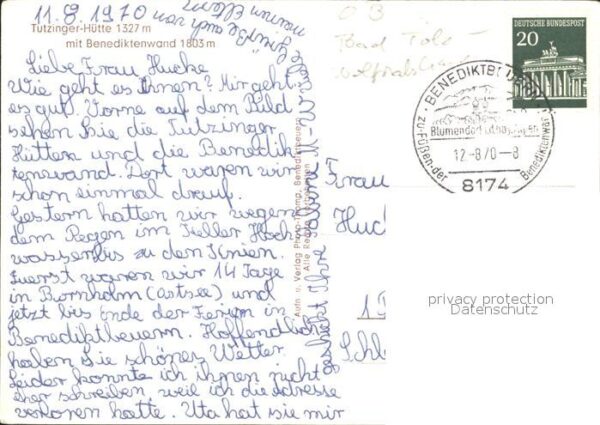 11.8.1970
Tutzinger-Hütte 1327 m
mit Benediktenwand 1803 m
Liebe Frau Hucke
Wie geht es Ihnen? Mir geht
es gut. Vorne auf dem Bild
sehen Sie die Tutzinger
Hütten und die Benedik-
tenwand. Dort waren wir
schon einmal drauf.
Gestern hatten wir wegen
dem Regen im Keller Hoch-
wasser bis zu den Knien.
Zuerst waren wir 14 Tage
in Bornholm (Ostsee) und
jetzt bis Ende der Ferien in
Benediktbeuern. Hoffendlich
haben Sie schönes Wetter.
Leider konnte ich ihnen nicht
eher schreiben, weil ich die Adresse
verloren hatte. Uta hat sie mir
Grüße auch von
meinen Eltern
Es grüßt Ihre
Bad Tölz -
Wolfratshausen
Frau
Huck
Schl
DEUTSCHE BUNDESPOST
20
BENEDIKTB
Blumendorf
12.-8.70.-8
zu-Füßen-der Benediktenwand
8174
privacy protection
Datenschutz